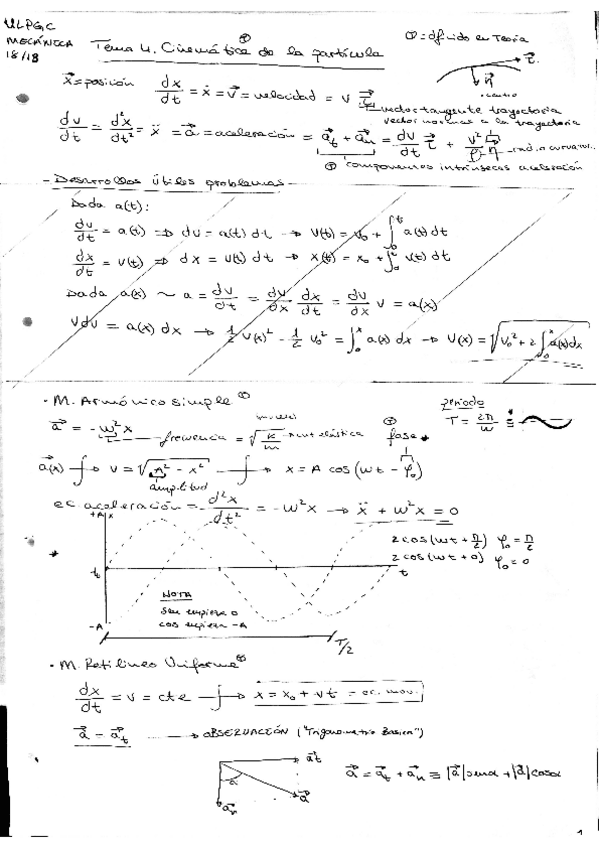 ULPGC
MECÁNICA
18/18
Tema 4. Cinemática de la partícula ①
① = definido en Teoría
τ⃗
η⃗
centro
x⃗ = posición dx/dt = ẋ = v⃗ = velocidad = v τ⃗
vector tangente trayectoria
vector normal a la trayectoria
dv/dt = d²x/dt² = ẍ = a⃗ = aceleración = a⃗t + a⃗n = dv/dt τ⃗ + v²/ρ η⃗
① componentes intrínsecas aceleración
- Desarrollos útiles problemas -
Dada a(t):
dv/dt = a(t) ⇒ dv = a(t) dt → v(t) = v₀ + ∫₀ᵗ a(t) dt
dx/dt = v(t) ⇒ dx = v(t) dt → x(t) = x₀ + ∫₀ᵗ v(t) dt
Dada a(x) ~ a = dv/dt = dv/dx dx/dt = dv/dx v = a(x)
v dv = a(x) dx → ½ v(x)² - ½ v₀² = ∫₀ˣ a(x) dx → v(x) = √(v₀² + 2∫₀ˣ a(x)dx)
· M. Armónico simple ①
periodo
T = 2π/ω
a⃗ = -ω²x
frecuencia = √(k/m)
elástica
① fase
a⃗(x) ∫→ v = √(A² - x²) ∫→ x = A cos(ωt - φ₀)
amplitud
ec aceleración = d²x/dt² = -ω²x → ẍ + ω²x = 0
+A x
t₀
-A
t
2cos(ωt + π/2) φ₀ = π/2
2cos(ωt + 0) φ₀ = 0
NOTA
sen empieza 0
cos empieza -A
T/2
· M. Retilíneo Uniforme ①
dx/dt = v = cte ∫→ x = x₀ + vt = ec. mov.
a⃗ = a⃗t → OBSERVACIÓN ("Trigonometría Básica")
a⃗t
α
a⃗n
a⃗
a⃗ = a⃗t + a⃗n ≡ |a⃗| senα + |a⃗| cosα
1